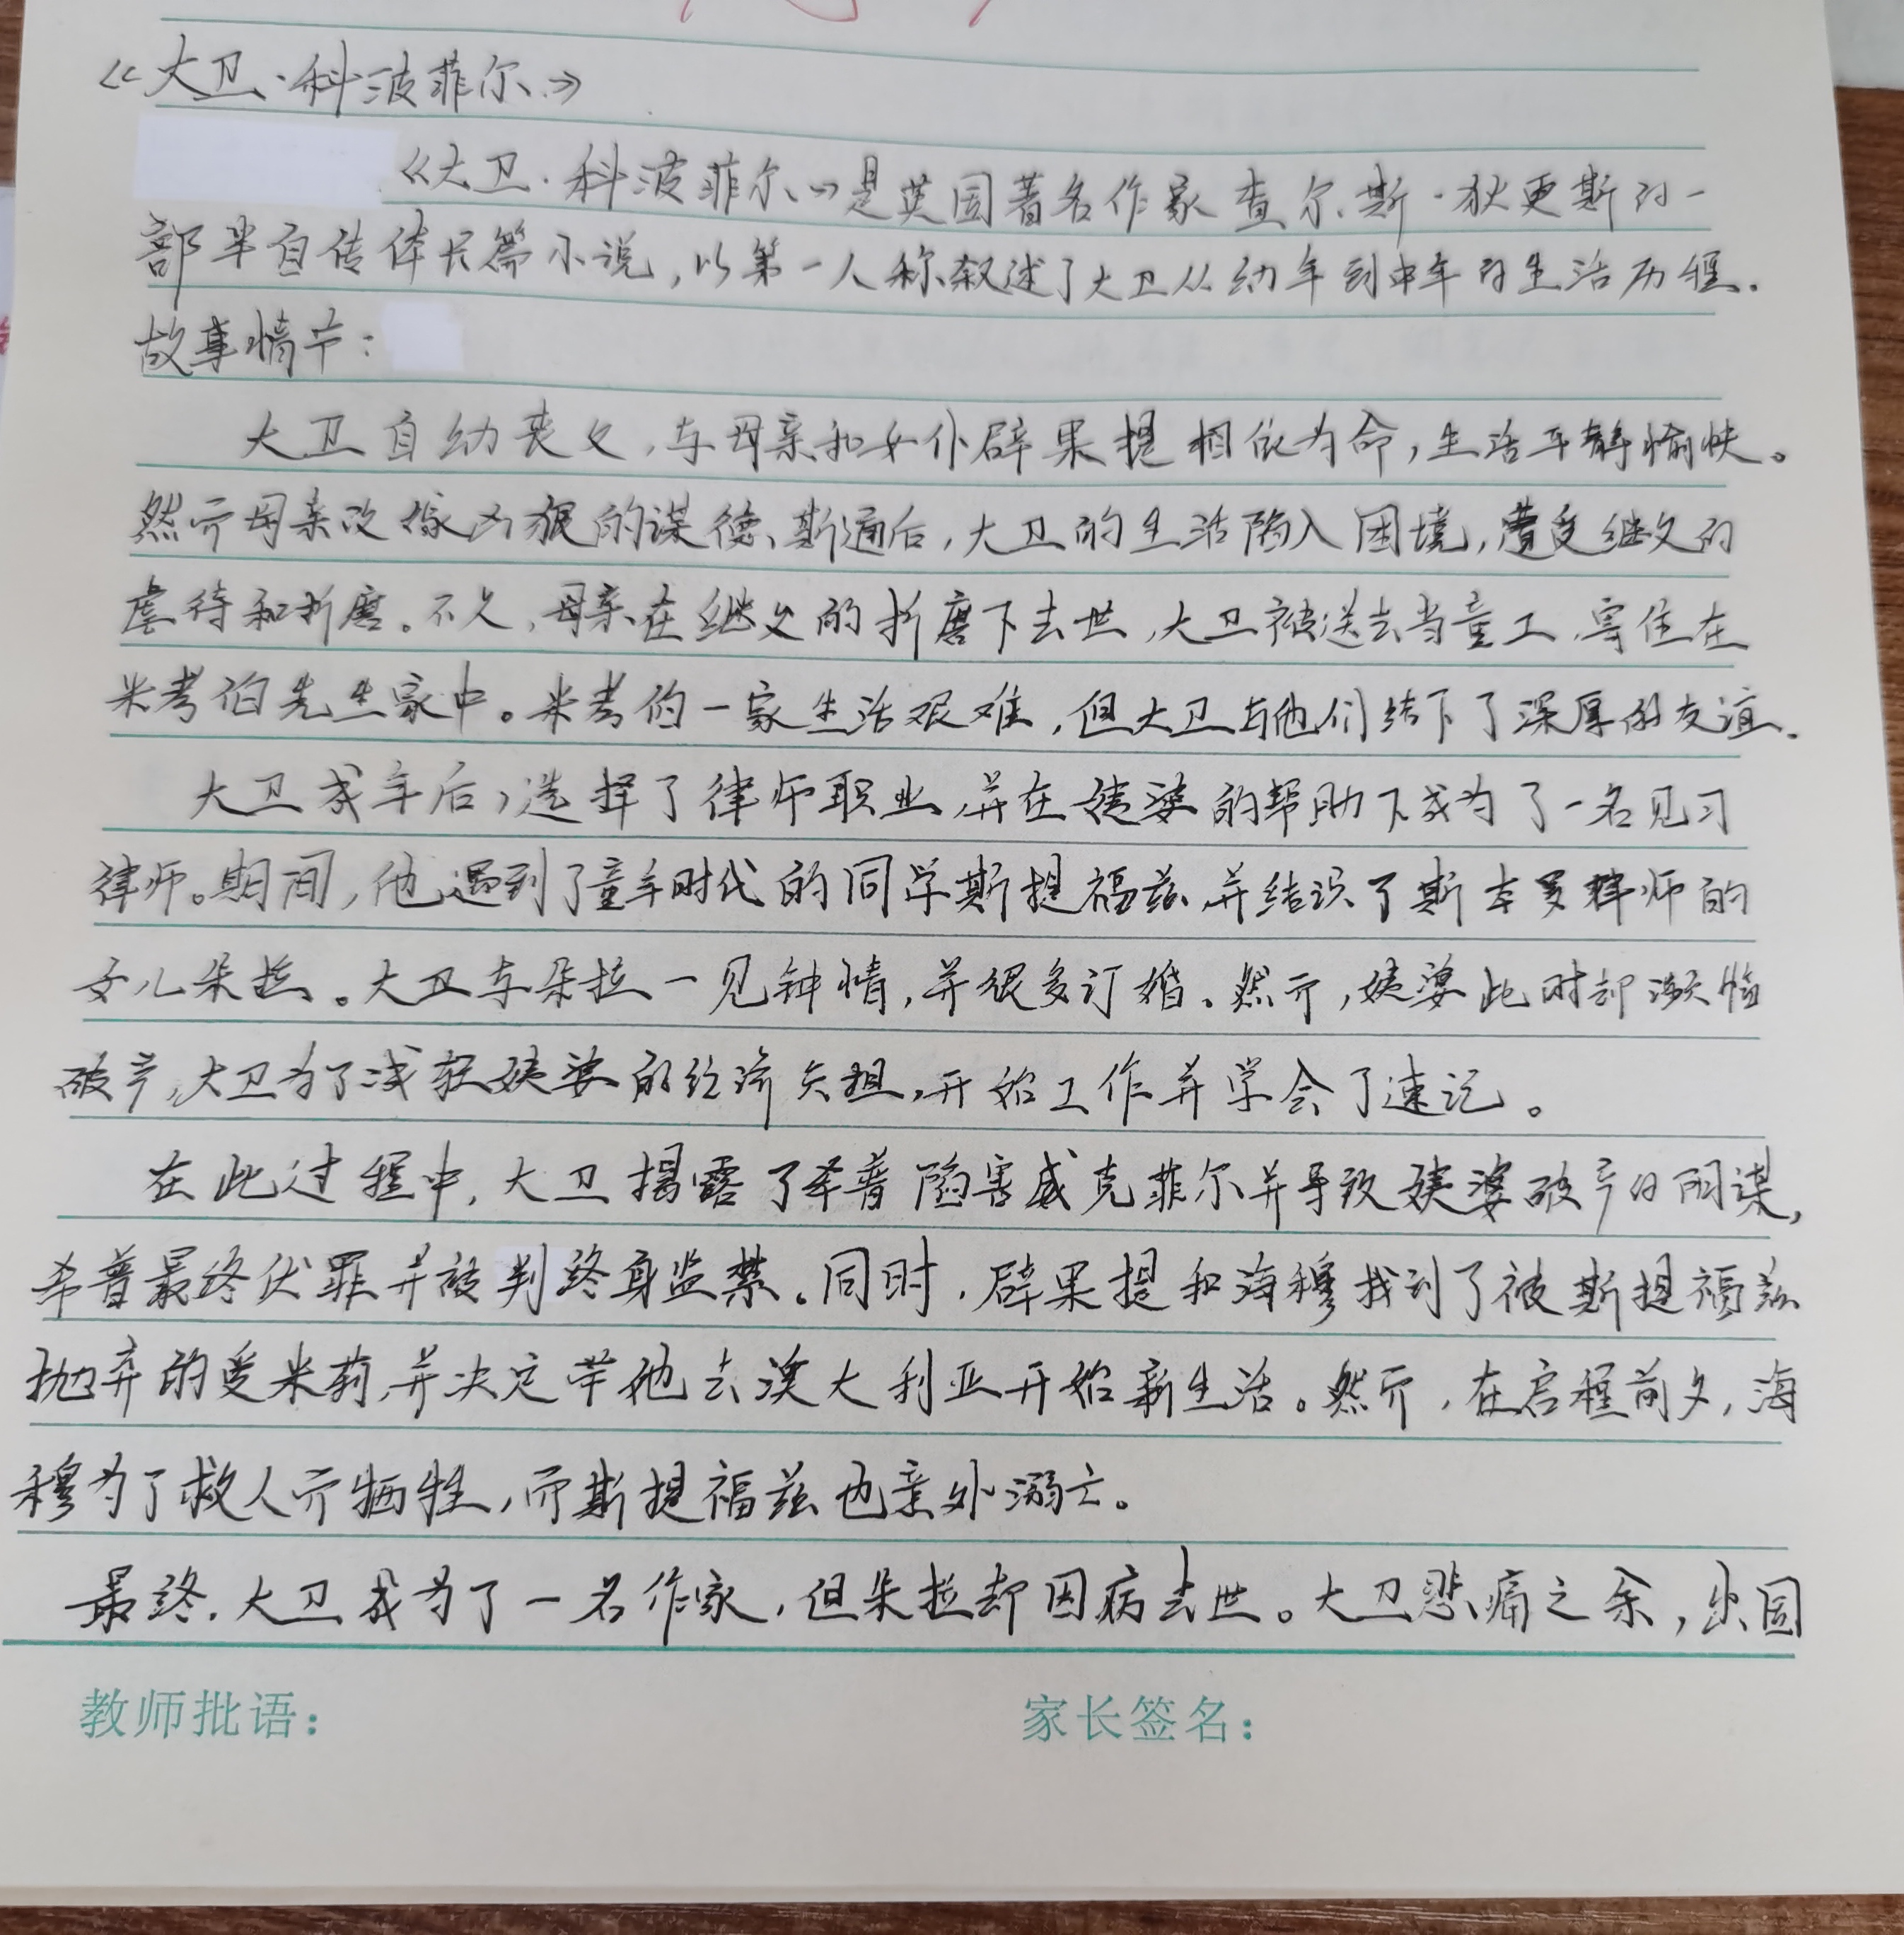 《大卫·科波菲尔》
《大卫·科波菲尔》是英国著名作家查尔斯·狄更斯的一
部半自传体长篇小说,以第一人称叙述了大卫从幼年到中年的生活历程.
故事情节:
大卫自幼丧父,与母亲和女仆辟果提相依为命,生活平静愉快。
然而母亲改嫁凶狠的谋得、斯通后,大卫的生活陷入困境,遭受继父的
虐待和折磨。不久,母亲在继父的折磨下去世,大卫被送去当童工,寄住在
米考伯先生家中。米考伯一家生活艰难,但大卫与他们结下了深厚的友谊.
大卫成年后,选择了律师职业,并在姨婆的帮助下成为了一名见习
律师。期间,他遇到了童年时代的同学斯提福兹,并结识了斯本罗律师的
女儿朵拉。大卫与朵拉一见钟情,并很多订婚。然而,姨婆此时却濒临
破产,大卫为了减轻姨婆的经济负担,开始工作并学会了速记。
在此过程中,大卫揭露了希普陷害威克菲尔并导致姨婆破产的阴谋,
希普最终伏罪并被判终身监禁。同时,辟果提和海穆找到了被斯提福兹
抛弃的爱米莉,并决定带他去澳大利亚开始新生活。然而,在启程前夕,海
穆为了救人而牺牲,而斯提福兹也意外溺亡。
最终,大卫成为了一名作家,但朵拉却因病去世。大卫悲痛之余,出国
教师批语:
家长签名: